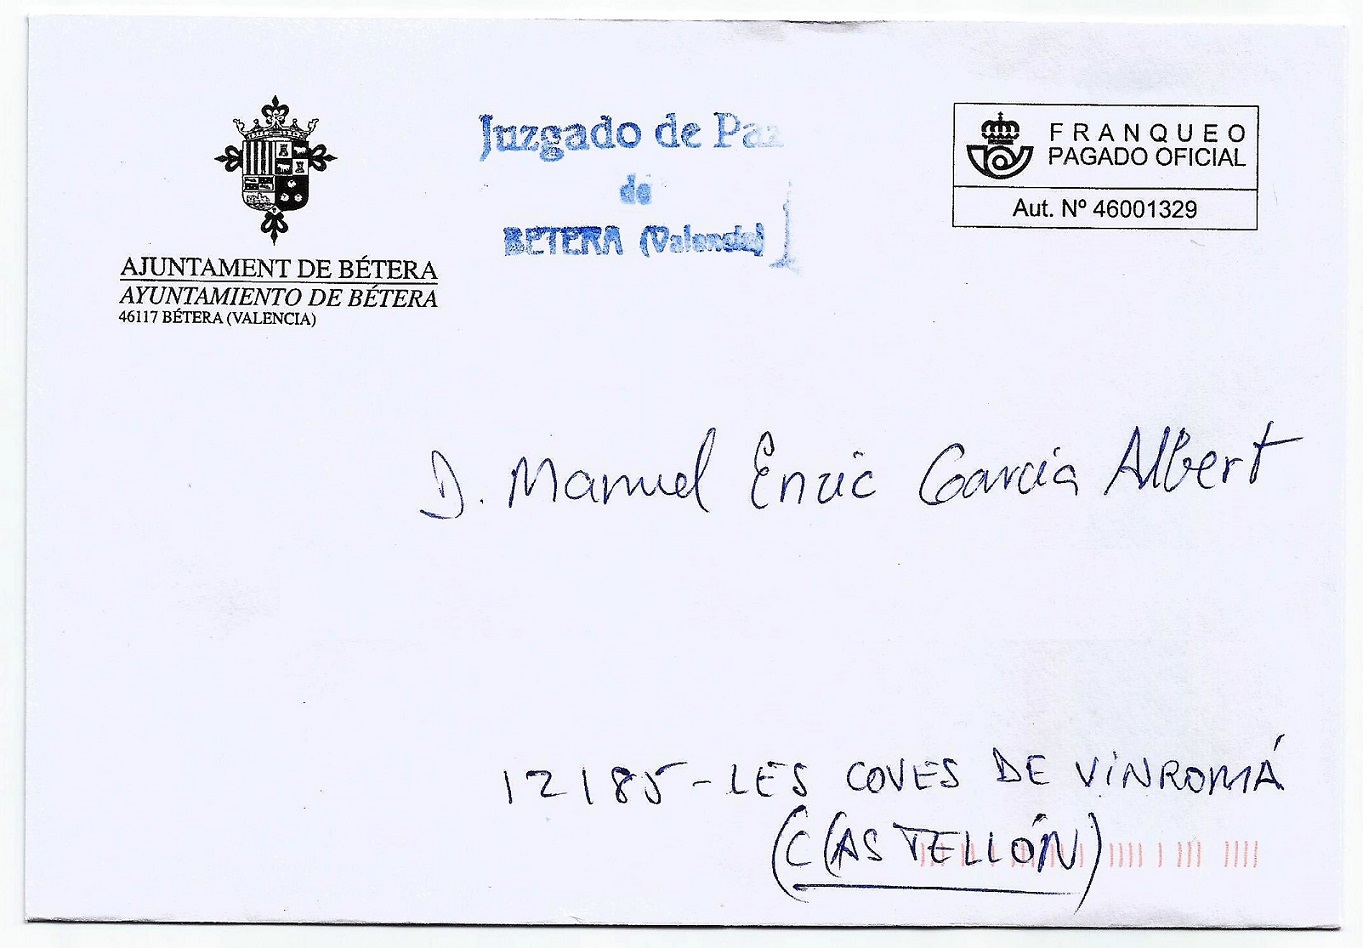 Juzgado de Paz
de
BETERA (Valencia)
FRANQUEO
PAGADO OFICIAL
Aut. Nº 46001329
AJUNTAMENT DE BÉTERA
AYUNTAMIENTO DE BÉTERA
46117 BÉTERA (VALENCIA)
D. Manuel Enric Garcia Albert
12185-LES COVES DE VINROMÁ
(CASTELLÓN)